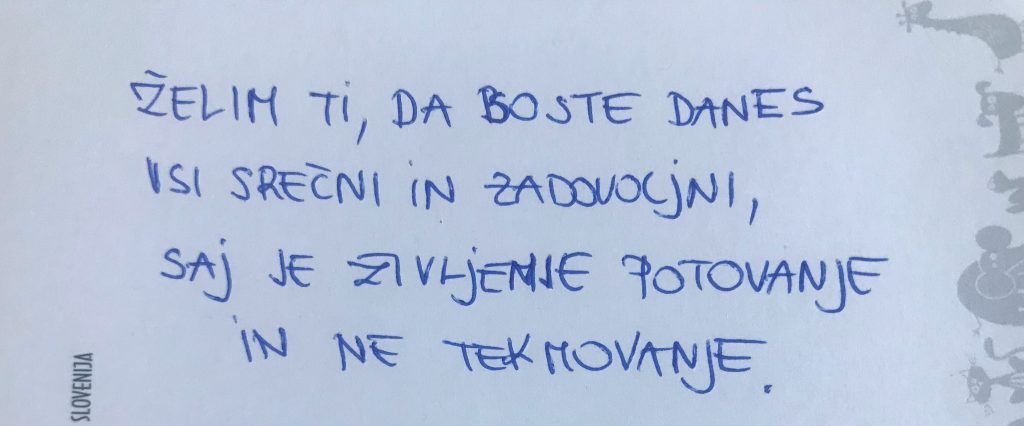 ŽELIM Ti, DA BOSTE DANES
VSI SREČNI iN ZADOVOLjNI,
SAj JE ZIVLjENJE POTOVANjE
iN NE TEKMOVANjE.
SLOVENIJA